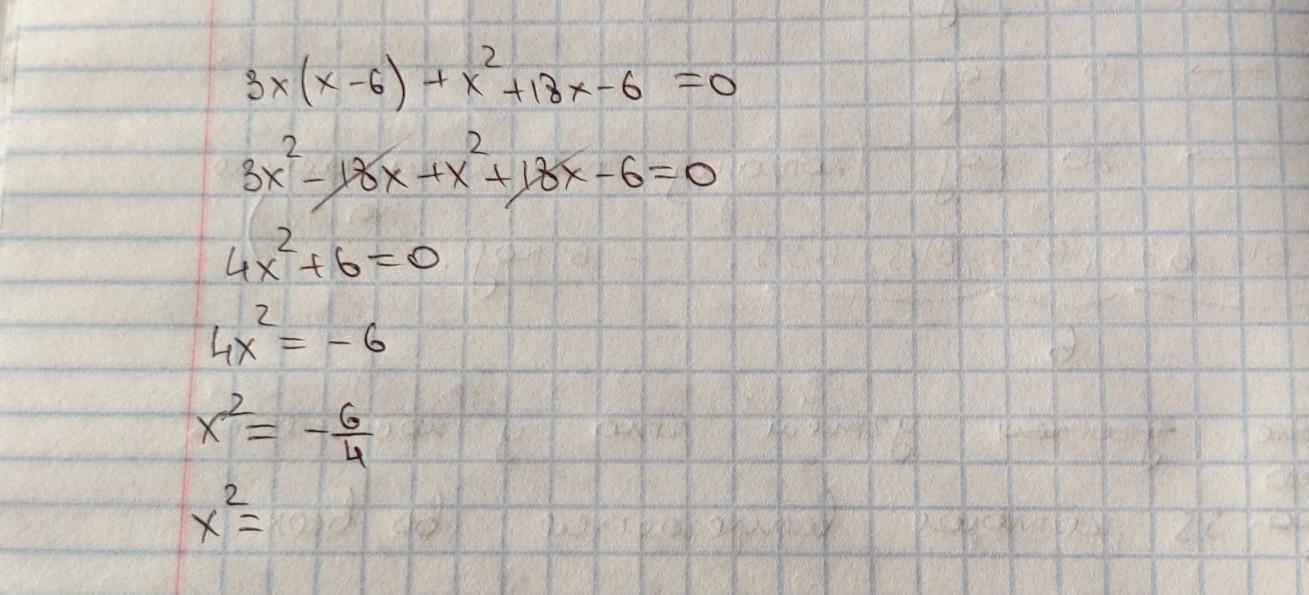 3x(x-6)+x²+18x-6=0
3x²-18x+x²+18x-6=0
4x²+6=0
4x²=-6
x²=-6/4
x²=